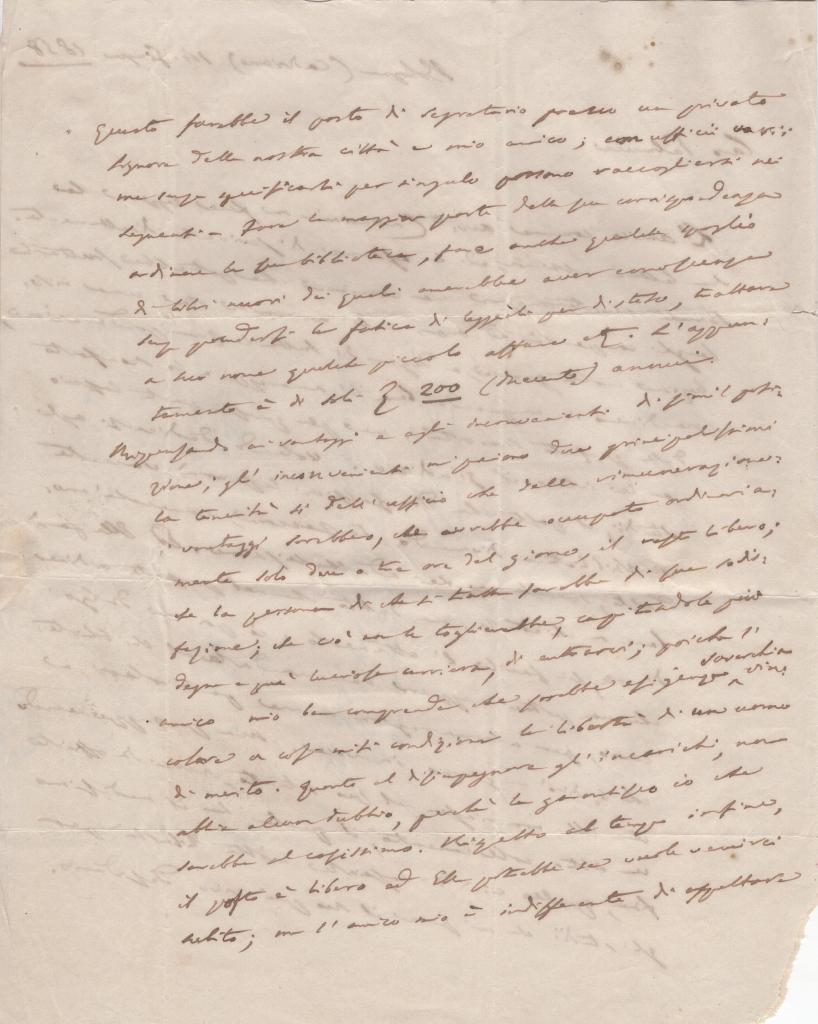 Questo sarebbe il posto di segretario presso un privato
signore della nostra città e mio amico; con ufficii varii:
ma senza specificarli per singulo possono raccogliersi nei
seguenti = Fare la maggior parte della sua corrispondenza
ordinare la sua biblioteca, fare anche qualche spoglio
di libri nuovi dei quali amerebbe aver conoscenza
senza prendersi la fatica di leggerli per disteso, trattare
a suo nome qualche piccolo affare etc. L'appun:
tamento è di soli 200 (duecento) annui.
ai vantaggi e agli inconvenienti di simil posi:
zione; gl' inconvenienti mi paiono due principalissimi
la tenuità sì dell' ufficio che della rimunerazione:
i vantaggi sarebbero, che avrebbe occupato ordinaria:
mente solo due o tre ore del giorno, il resto libero;
che la persona di che si tratta sarebbe di sua sodis:
fazione; che ciò non le toglierebbe, capitandole più
degna e più lucrosa carriera, di entrarvi; poichè l'
amico mio ben comprende che sarebbe esigenza soverchia vin:
colare a così miti condizioni la libertà di un uomo
di merito. Quanto al disimpegnare gl' incarichi, non
abbia alcun dubbio, perchè la garantisco io che
sarebbe al casissimo. Rispetto al tempo infine,
il posto è libero ed Ella potrebbe se vuole venirci
subito; ma l' amico mio è indifferente di aspettare